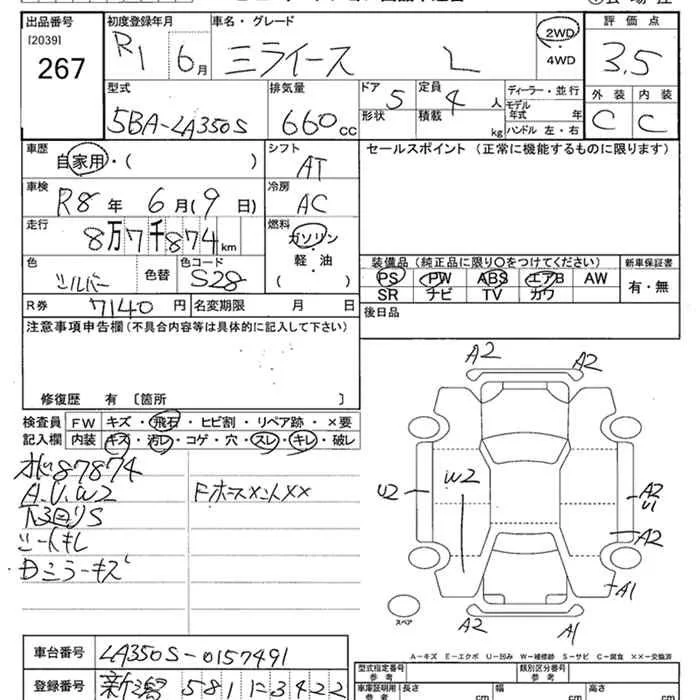 出品番号 初度登録年月 車名・グレード 2WD 評価点
[2039] R1 6月 ミライース L ・4WD 3.5
267
型式 排気量 ドア 5 定員 4 人 ディーラー・並行 外装 内装
5BA-LA350S 660cc 形状 積載 kg モデル年式 年 C C
ハンドル 左・右
車歴 自家用・( ) シフト AT セールスポイント (正常に機能するものに限ります)
車検 R8年 6月(9日) 冷房 AC
走行 8万7千874km 燃料 ガソリン・軽・油 ( )
色 シルバー 色替 色コード S28 装備品 (純正品に限り○をつけてください) 新車保証書
PS PW ABS エアB AW 有・無
SR ナビ TV カワ
R券 7140円 名変期限 月 日 後日品
注意事項申告欄 (不具合内容等は具体的に記入して下さい)
修復歴 有 〔箇所 〕
検査員 FW キズ・飛石・ヒビ割・リペア跡・×要
記入欄 内装 キズ・汚レ・コゲ・穴・スレ・キレ・破レ
87874
A.U.W2 Fホースメント××
下回りS
シートキレ
ミラーキズ
A2 A2
U2 W2 A2
U1
A2
A1
A2 A1
スペア
A-キズ E-エクボ U-凹み W-補修跡 S-サビ C-腐食 ××-交換済
車台番号 LA350S-0157491
登録番号 新潟 581 に 3422
型式指定番号 類別区分番号
参考
車庫証明用 長さ cm 幅 cm 高さ cm
参考